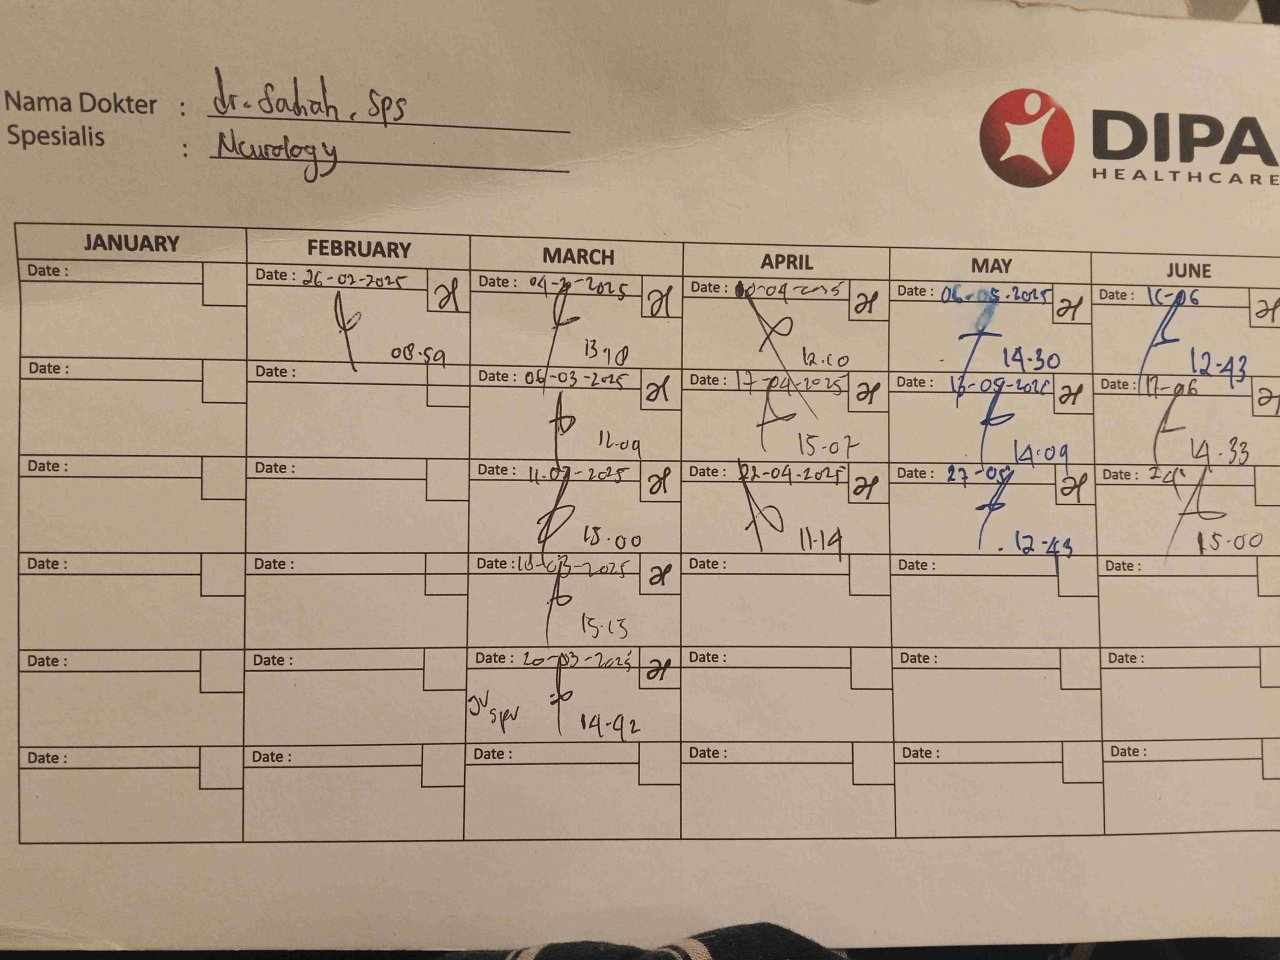 Nama Dokter : dr. Sadiah, Sps
Spesialis : Neurology
DIPA
HEALTHCARE
JANUARY FEBRUARY MARCH APRIL MAY JUNE
Date : Date : 26-02-2025 Date : 04- -2025 Date : -04-2025 Date : 06-05-2025 Date : 16-06
08.59 13 10 12.10 14-30 12-43
Date : Date : Date : 06-03-2025 Date : 17-04-2025 Date : Date : 17-06
12.09 15-07 14.09 14.33
Date : Date : Date : 11-03-2025 Date : 22-04-2025 Date : 27-05 Date :
15.00 11-14 12-43 15-00
Date : Date : Date : 18-03-2025 Date : Date : Date :
15.15
Date : Date : Date : 20-03-2025 Date : Date : Date :
JV spv 14-42
Date : Date : Date : Date : Date : Date :